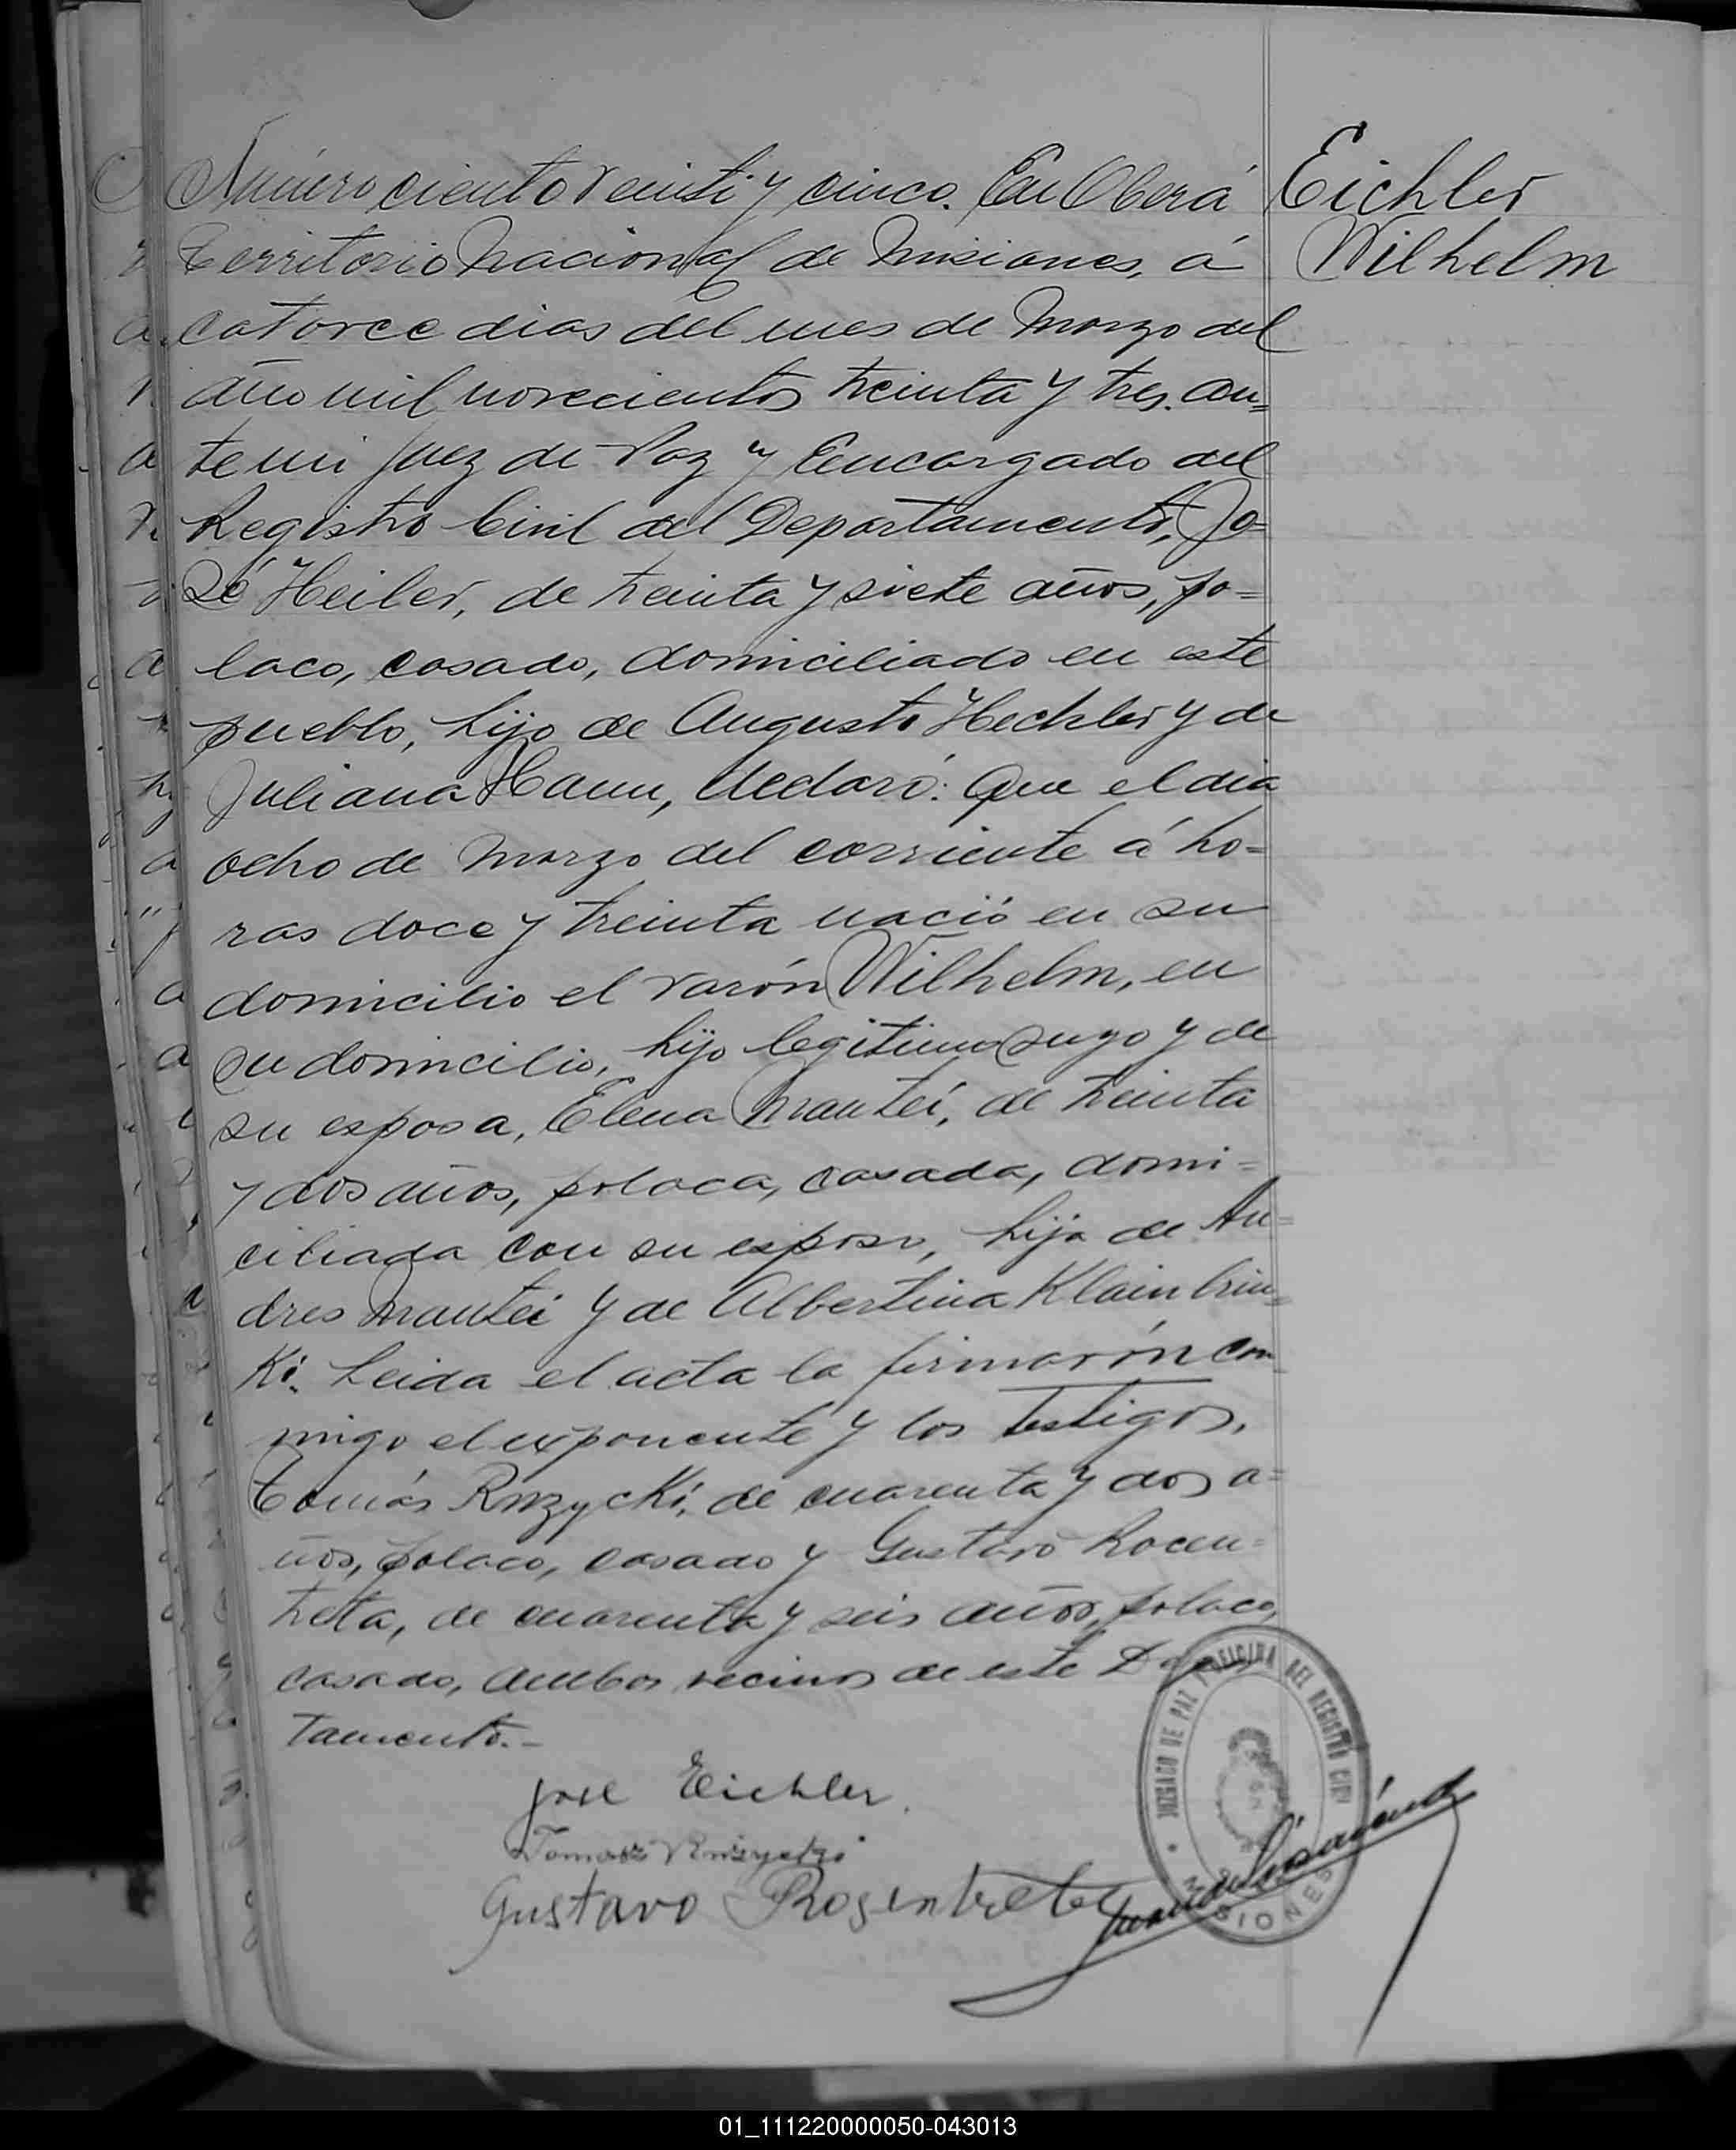 Número ciento veinti y cinco. En Oberá
Eichler
Wilhelm
territorio Nacional de Misiones, á
catorce dias del mes de Marzo del
año mil novecientos treinta y tres. an=
te mi Juez de Paz y Encargado del
Registro Civil del Departamento, Jo=
sé Heiler, de treinta y siete años, po=
laco, casado, domiciliado en este
pueblo, hijo de Augusto Hechler y de
Juliana Hann, declaró: Que el dia
ocho de Marzo del corriente á ho=
ras doce y treinta nació en su
domicilio el varón Wilhelm, en
su domicilio, hijo legitimo suyo y de
su esposa, Elena Mantei, de treinta
y dos años, polaca, casada, domi=
ciliada con su esposo, hija de An=
dres Mantei y de Albertina Klainbrin=
ki. Leida el acta la firmarón con
migo el exponente y los testigos,
Tomás Rnzycki, de cuarenta y dos a=
ños, polaco, casado y Gustavo Rocen=
treta, de cuarenta y seis años, polaco,
casado, ambos vecinos de este
tamento.-
José Eichler.
Tomasz
Gustavo Rosentreter
JUZGADO DE PAZ Y OFICINA DEL REGISTRO CIVIL
MISIONES
01_111220000050-043013